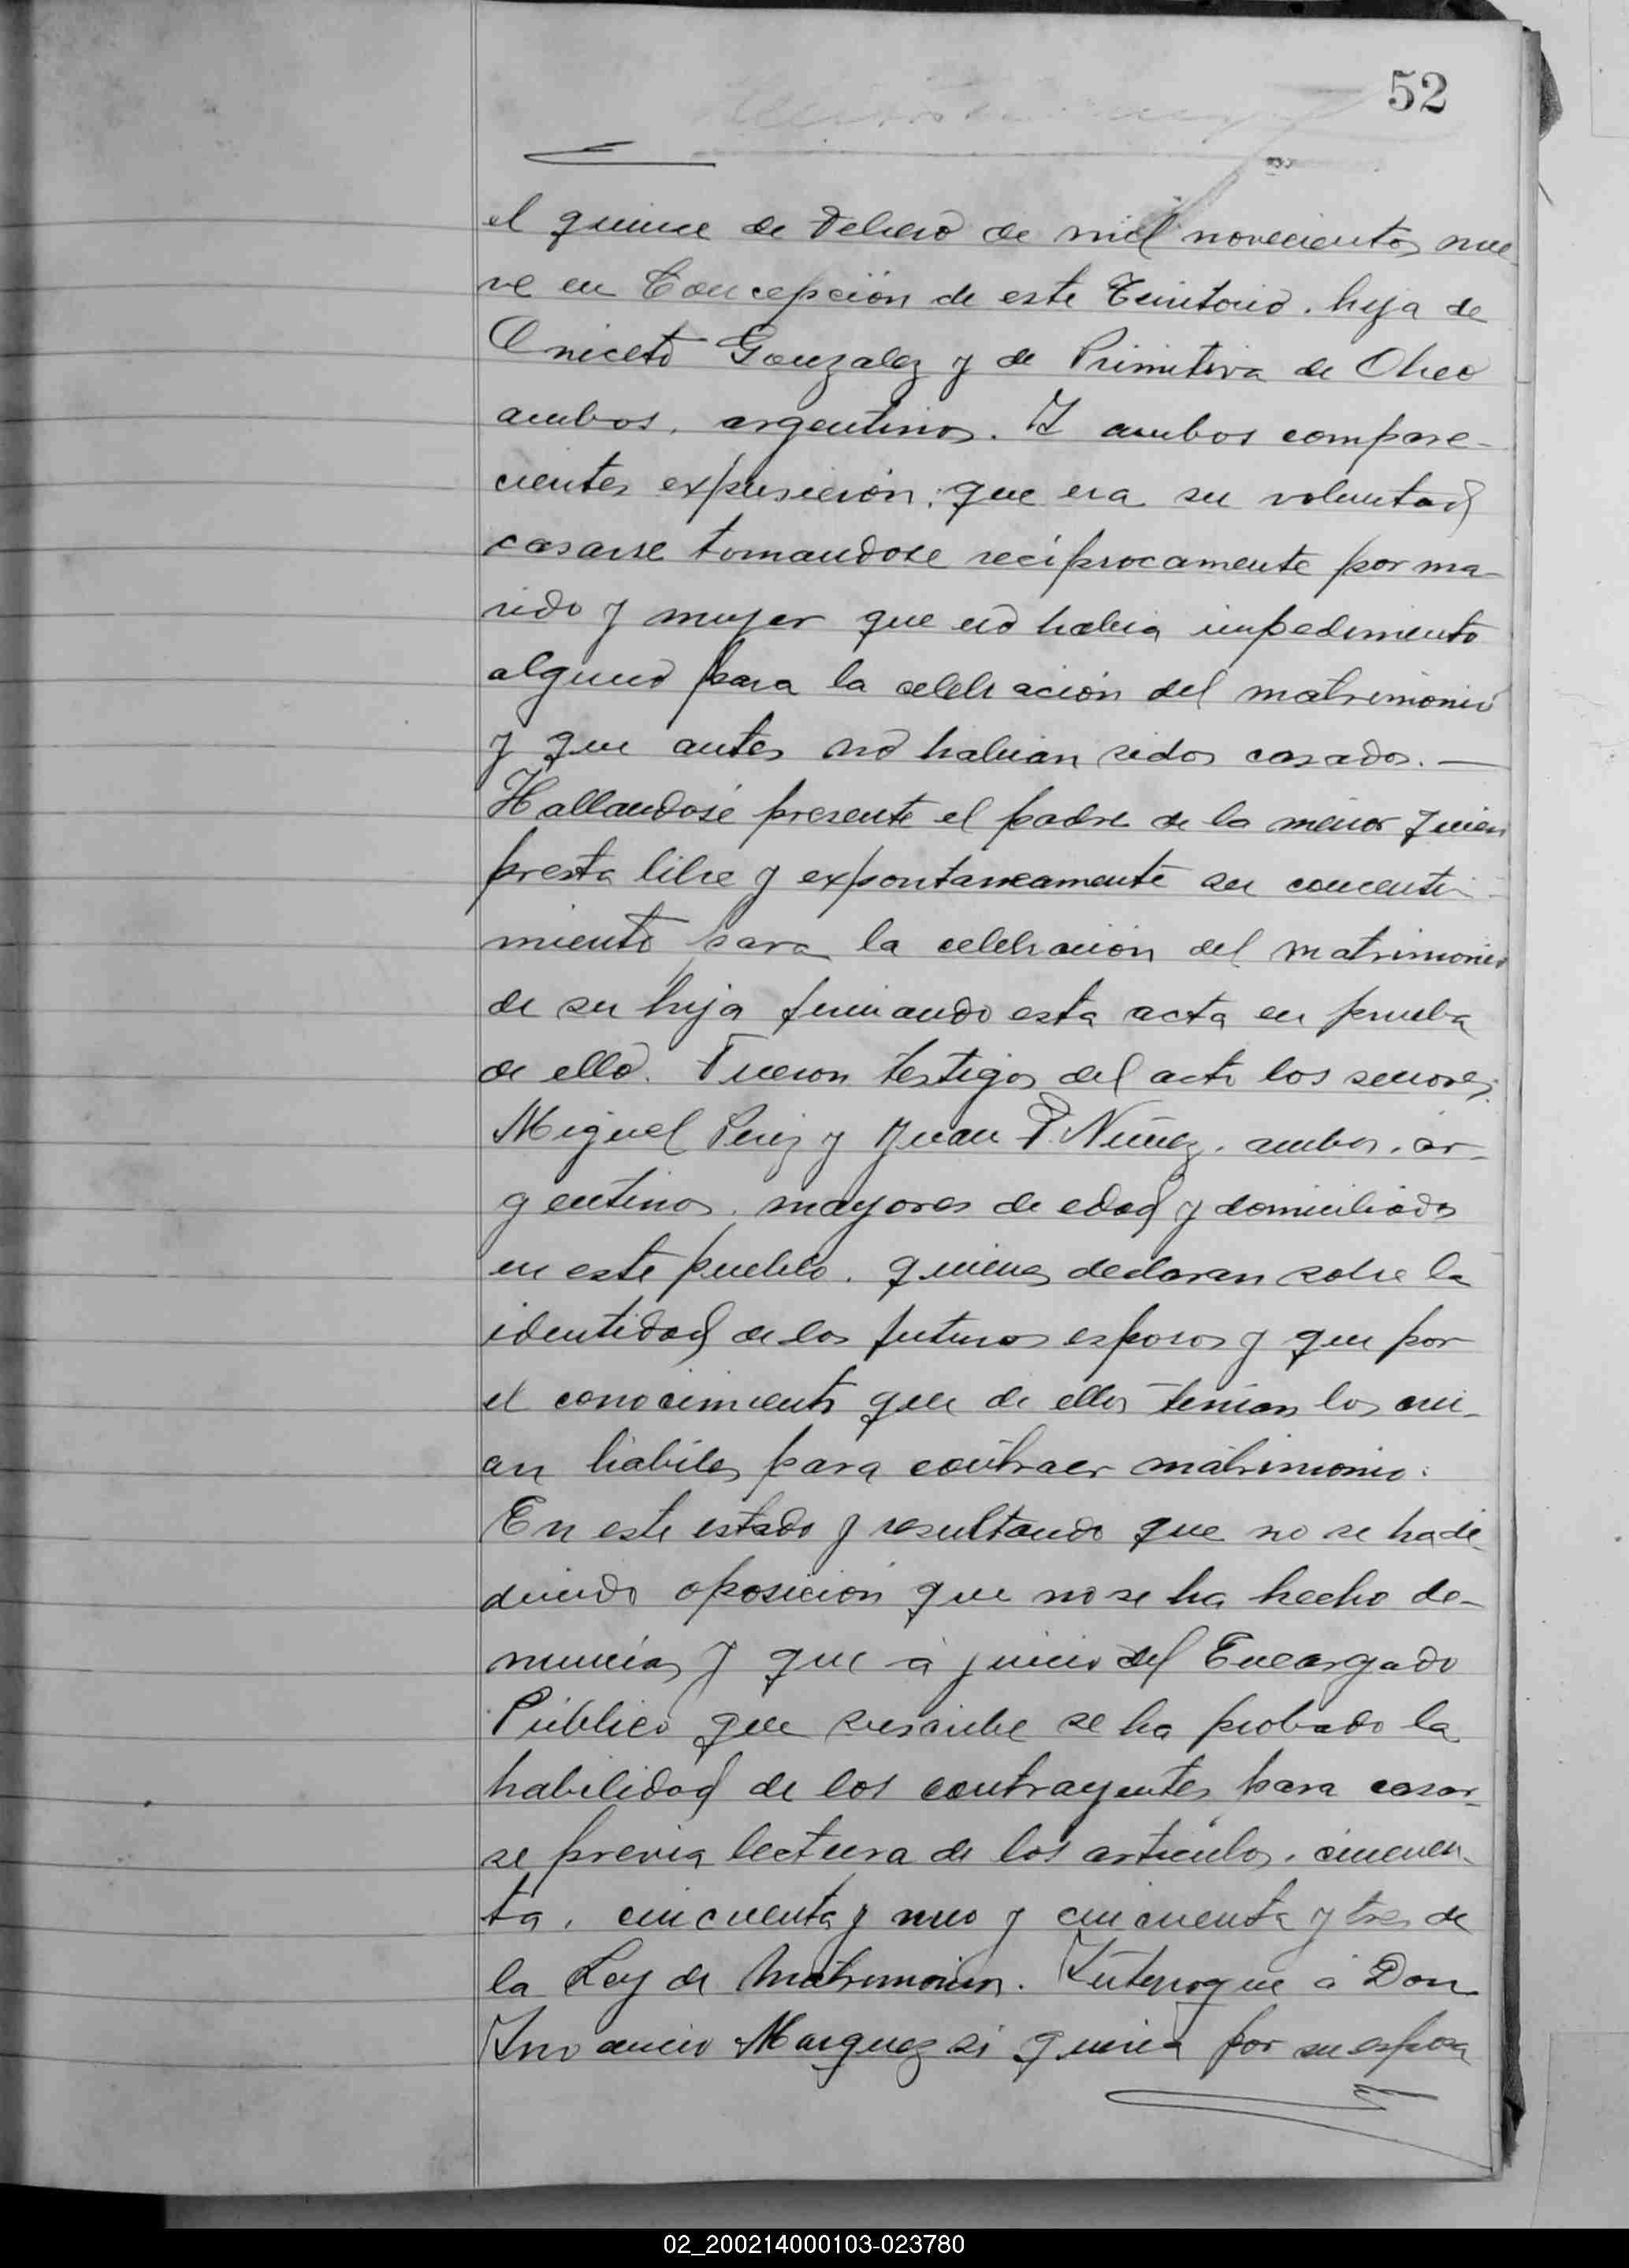 52
el quince de Febrero de mil novecientos nue
ve en Concepción de este Territorio. hija de
Aniceto Gonzalez y de Primitiva de
ambos. argentinos. Y ambos compare-
cientes expusieron: que era su voluntad
casarse tomandose recíprocamente por ma-
rido y mujer que no habia impedimento
alguno para la celebración del matrimonio
y que antes no habian sidos casados. —
Hallandose presente el padre de la menor quien
presta libre y expontaneamente su concenti-
miento para la celebración del matrimonio
de su hija firmando esta acta en prueba
de ello. Fueron testigos del acto los señores.
Miguel Perez y Juan P. Nuñez. ambos. ar-
gentinos. mayores de edad y domiciliados
en este pueblo. quienes declaran sobre la
identidad de los futuros esposos y que por
el conocimiento que de ellos tenian los cre-
an habiles para contraer matrimonio.
En este estado y resultando que no se ha de-
ducido oposición que no se ha hecho de-
nuncias y que á juicio del Encargado
Público que suscribe se ha probado la
habilidad de los contrayentes para casar-
se previa lectura de los articulos. cincuen-
ta. cincuenta y uno y cincuenta y tres de
la Ley de Matrimonios. Interrogue á Don
Marquez si queria por su esposa
02_200214000103-023780